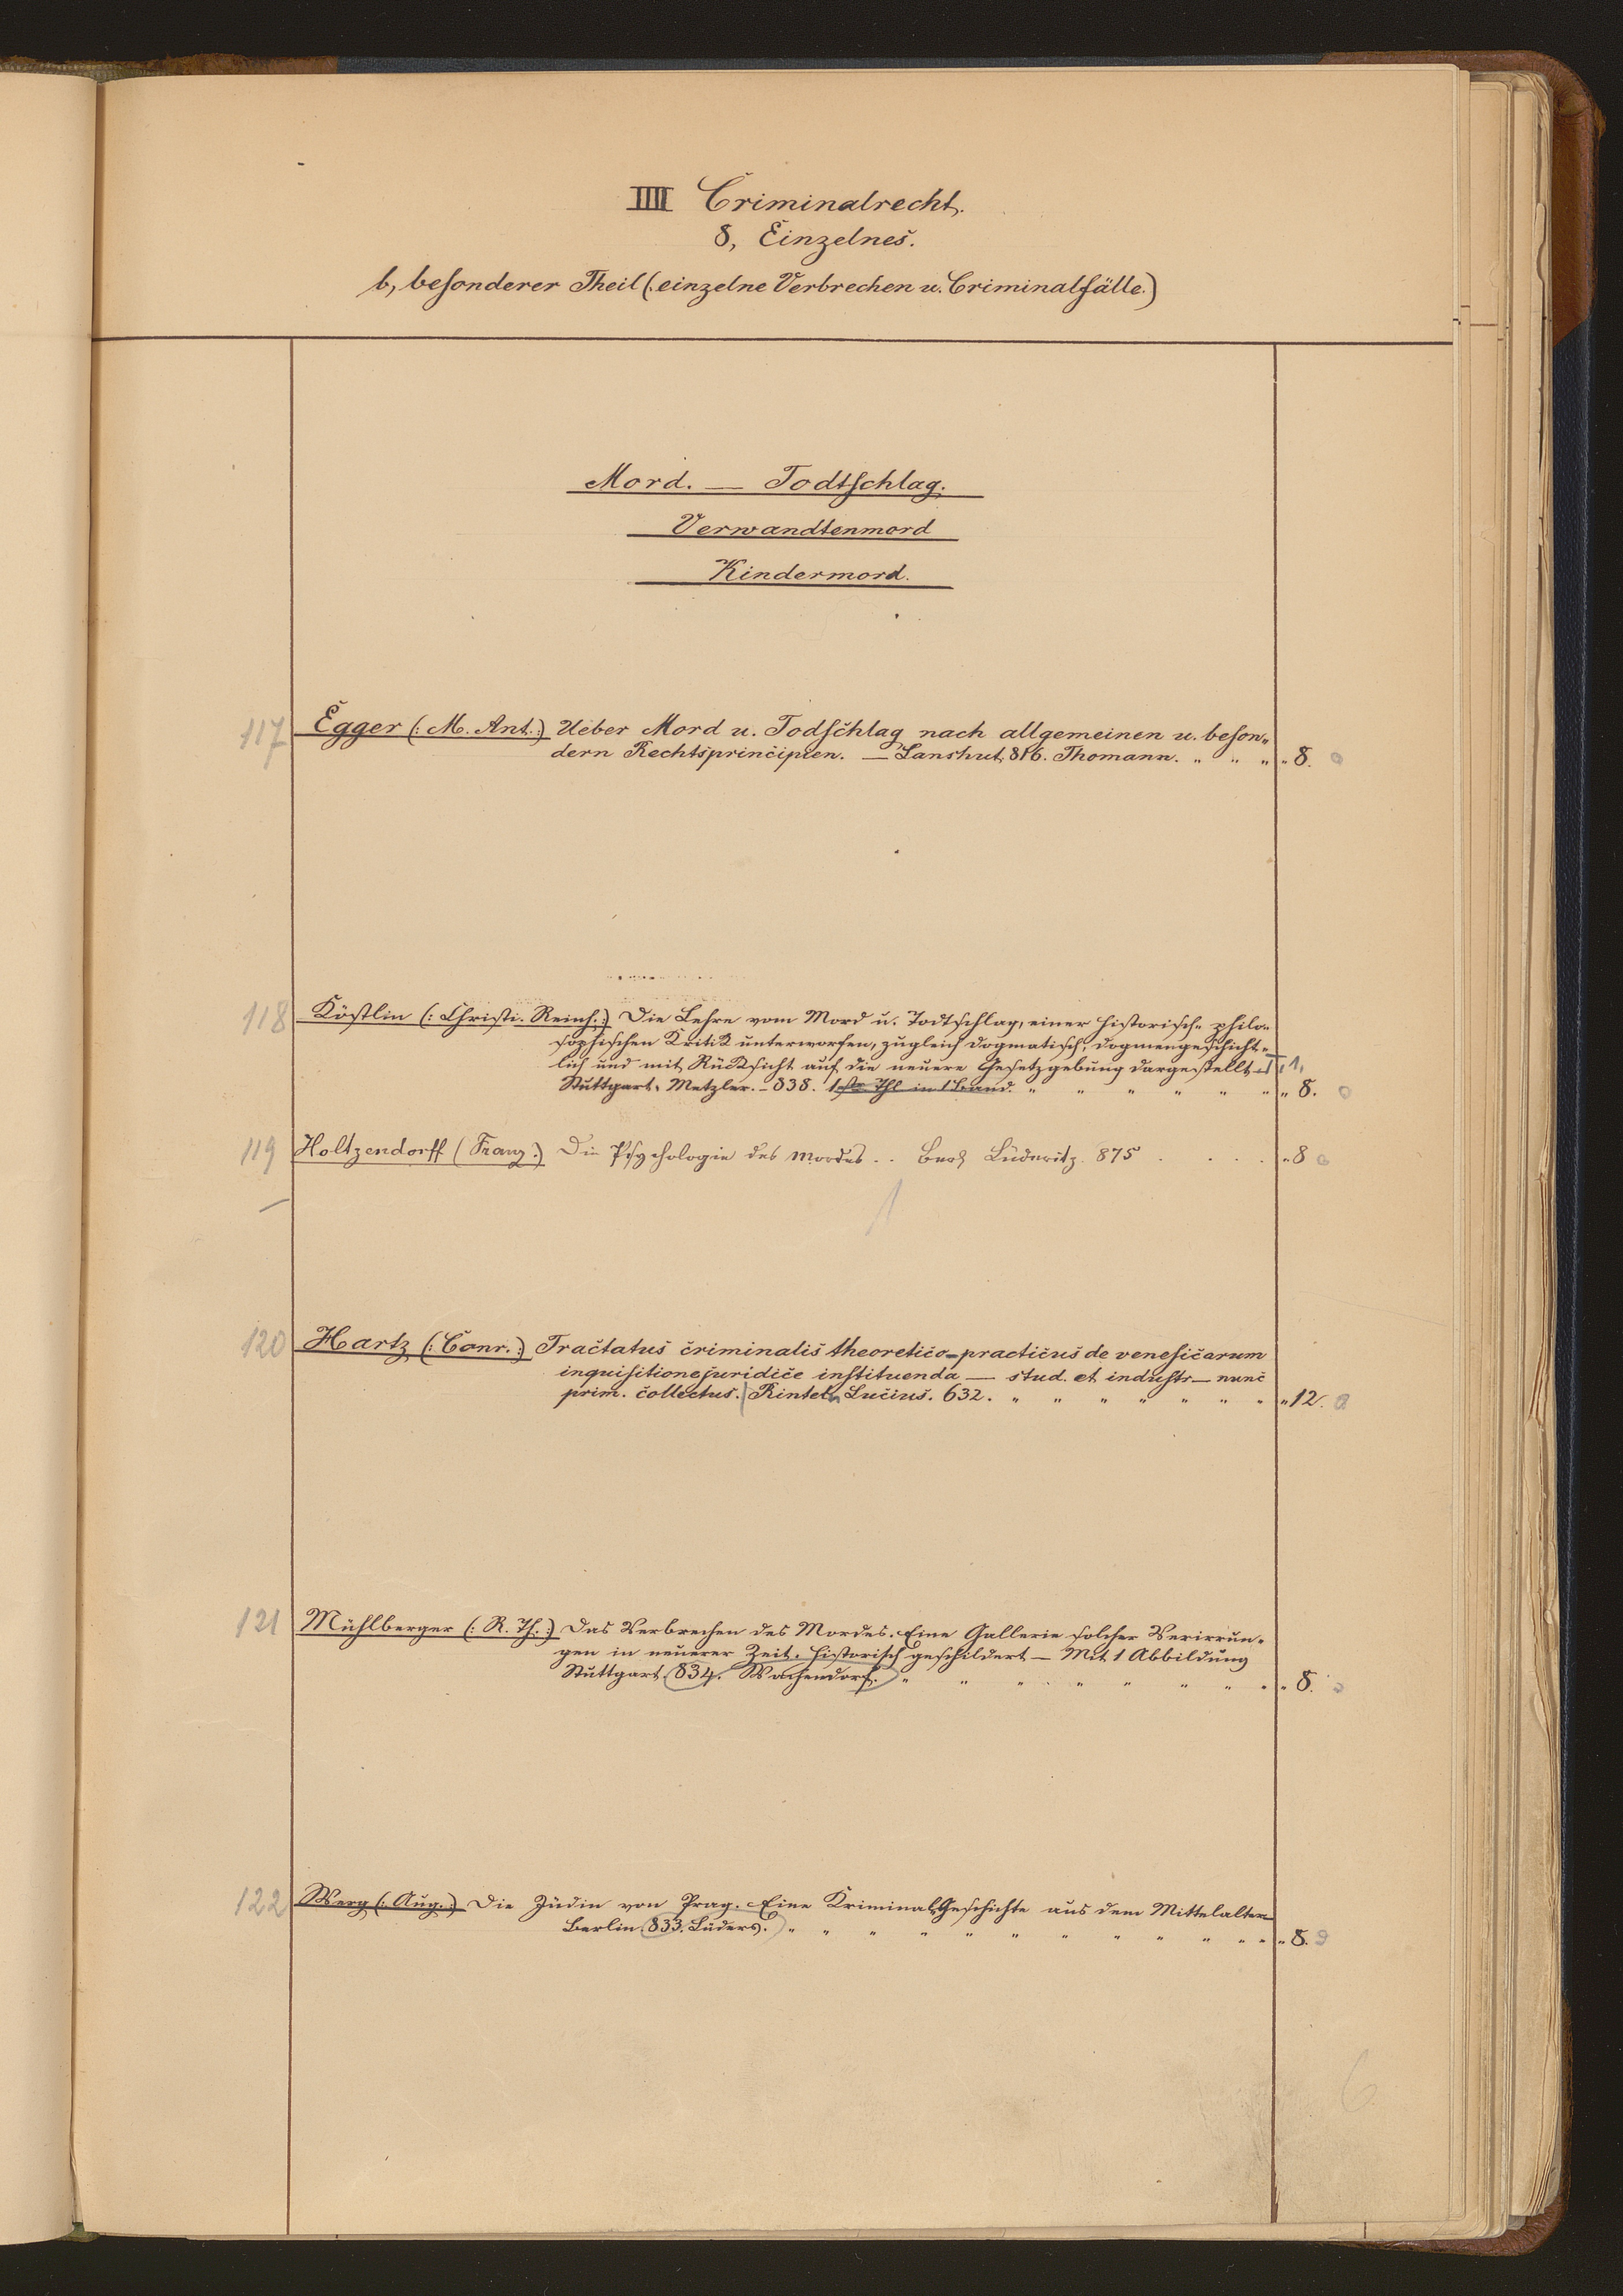 IIII Criminalrecht.
8, Einzelnes.
b, besonderer Theil (:einzelne Verbrechen u. Criminalfälle.)
Mord. — Todtschlag.
Verwandtenmord
Kindermord.
117 Egger (: M. Ant.:) Ueber Mord u. Todschlag nach allgemeinen u. beson„
dern Rechtsprincipien. — Lanshut, 816. Thomann. „ „ „ „ 8.
118 Köstlin (: Christi. Reinh.:) Die Lehre vom Mord u. Todtschlag, einer historisch- philo„
sophischen Kritik unterworfen, zugleich dogmatisch, dogmengeschicht„
lich und mit Rücksicht auf die neuere Gesetzgebung dargestellt I 1,
Stuttgart, Metzler. – 838. 1ster Thl in 1 Band. „ „ „ „ „ „ „ 8.
119 Holtzendorff (Franz.) Die Psychologie des Mordes.. Berl Lüderitz. 875 . . . . „ 8
120 Hartz (: Conr.:) Tractatus criminalis theoretico-practicus de veneficarum
inquisitione juridice instituenda — stud. et industr — nunc
prim. collectus. Rinteln Lucius. 632. „ „ „ „ „ „ „ „ 12.
121 Mühlberger (: R. Th.:) Das Verbrechen des Mordes. Eine Gallerie solcher Verirrun„
gen in neuerer Zeit. historisch geschildert — Mit 1 Abbildung
Stuttgart. 834. Wachendorf. „ „ „ „ „ „ „ „ „ 8.
122 Werg (: Aug.:) Die Jüdin von Prag. Eine Kriminal Geschichte aus dem Mittelalter
Berlin 833. Lüders. „ „ „ „ „ „ „ „ „ „ „ „ „ 8.
6